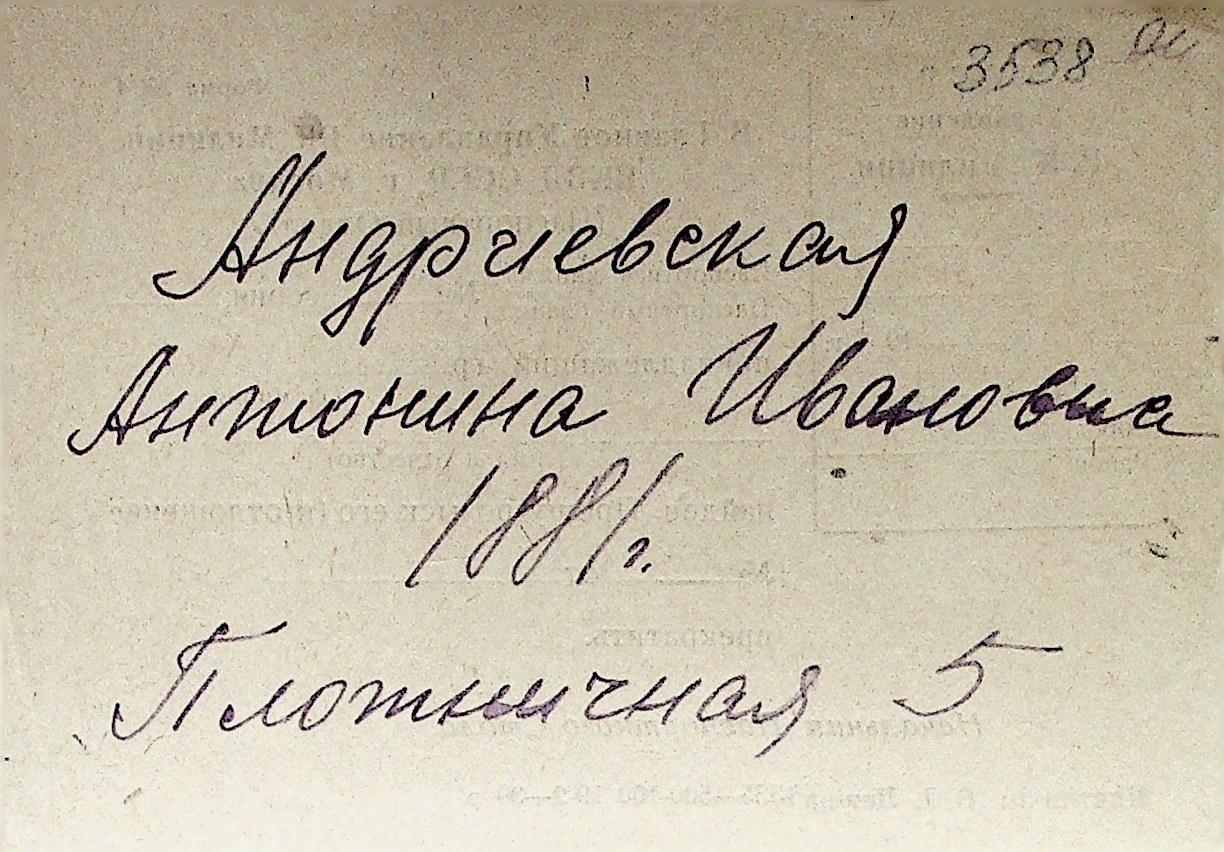 3538
Андриевская
Антонина Ивановна
1881 г.
Плотничная 5